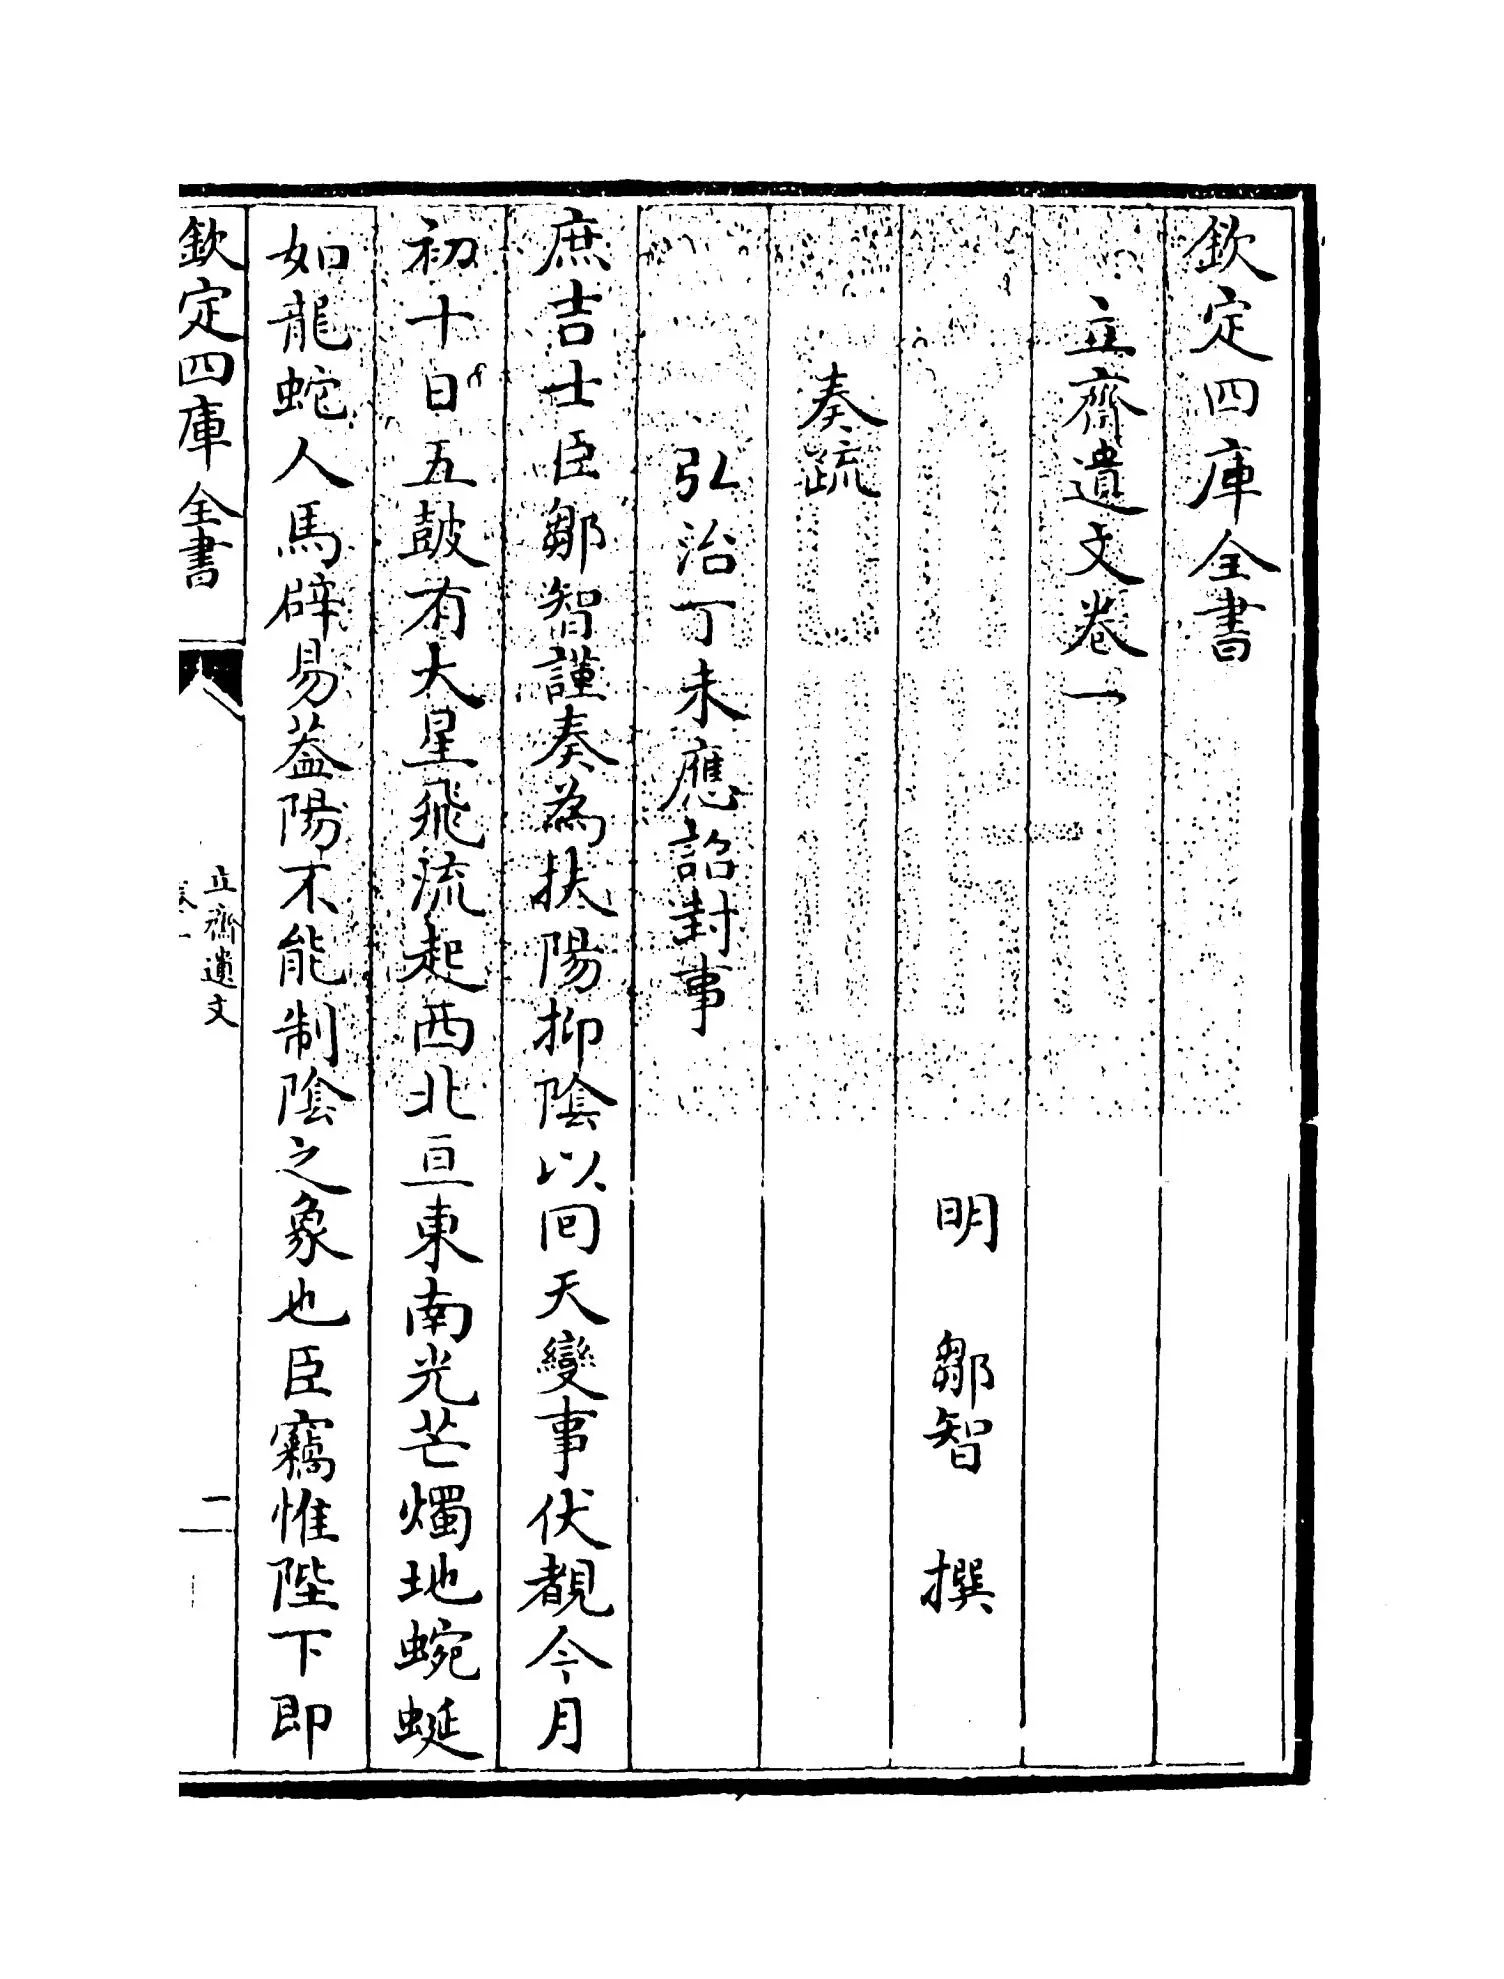 欽定四庫全書
立齋遺文卷一
明 鄒智 撰
奏疏
弘治丁未應詔封事
庶吉士臣鄒智謹奏為扶陽抑陰以回天變事伏覩今月
初十日五鼓有大星飛流起西北亘東南光芒燭地蜿蜒
如龍蛇人馬辟易葢陽不能制陰之象也臣竊惟陛下即
欽定四庫全書
立齋遺文
一